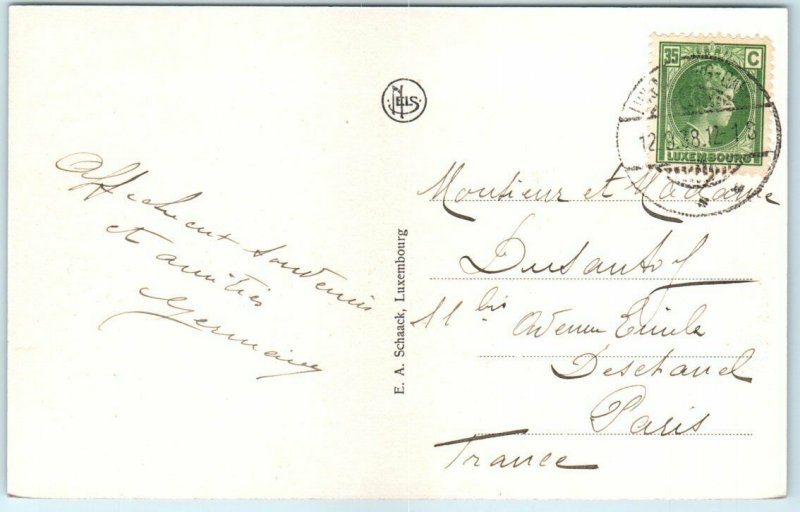 Affectueux souvenirs
et amitiés
Germaine
E. A. Schaack, Luxembourg
NELS
35 C
LUXEMBOURG
12.8.38.12-1
Monsieur et Madame
11 bis Avenue Emile
Deschanel
Paris
France